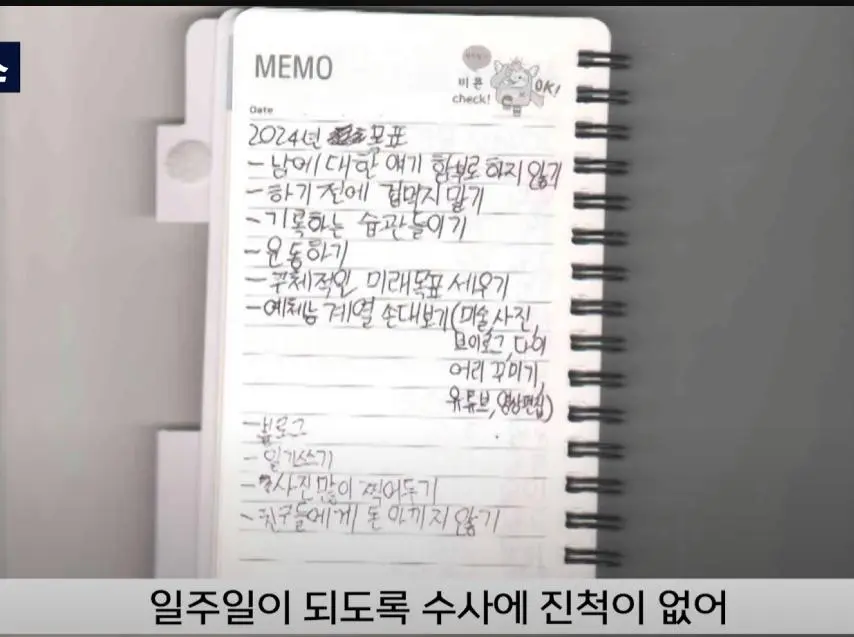 스
MEMO
비 콘
check!
OK!
Date
2024년 목표
- 남에 대한 얘기 함부로 하지 않기
- 하기 전에 겁먹지 말기
- 기록하는 습관들이기
- 운동하기
- 구체적인 미래목표 세우기
- 예체능 계열 손대보기(미술,사진,
브이로그, 다이
어리 꾸미기,
유튜브, 영상편집)
- 블로그
- 일기쓰기
- 사진많이 찍어두기
- 친구들에게 돈 아끼지 않기
일주일이 되도록 수사에 진척이 없어